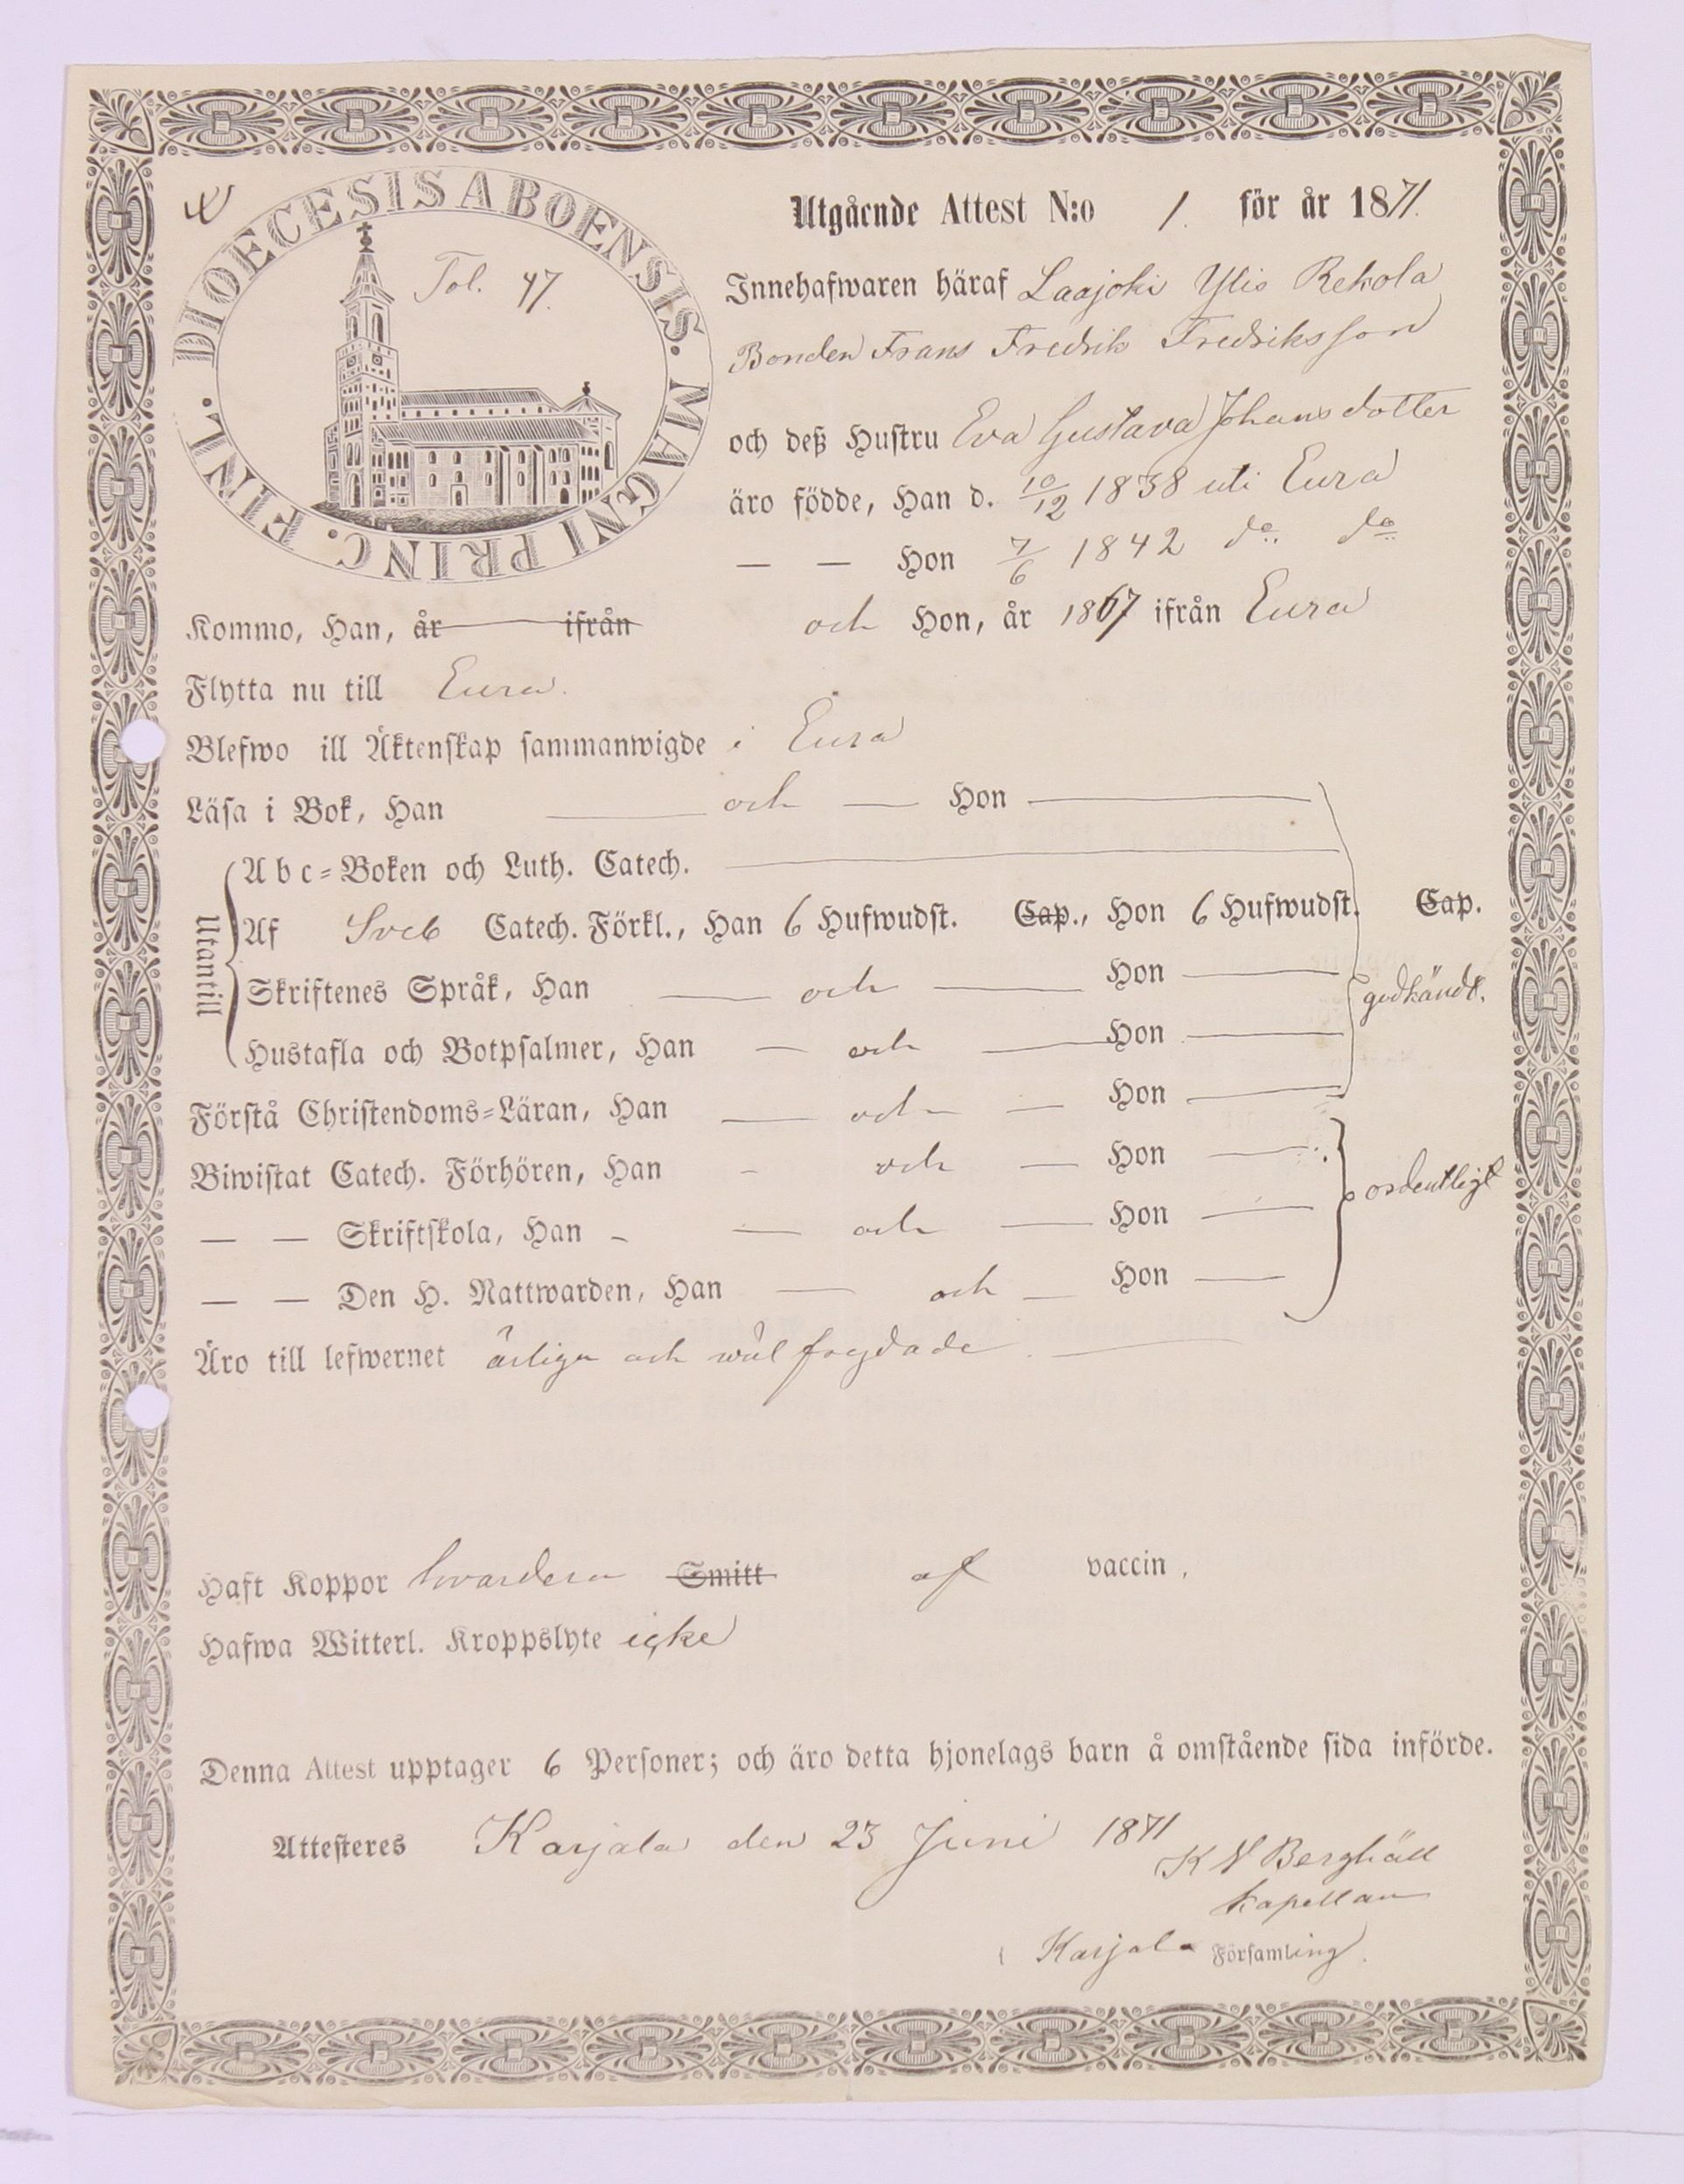 DIOECESIS ABOENSIS. MAGNI PRINC. FINL.
Tol. 47.
Utgående Attest N:o 1. för år 1871.
Innehafwaren häraf Laajoki Ylis Rekola
Bonden Frans Fredrik Fredriksson
och deß Hustru Eva Gustava Johansdotter
äro födde, Han d. 10/12 1838 uti Eura
— — Hon 7/6 1842 do do
Kommo, Han, år ifrån och Hon, år 1867 ifrån Eura
Flytta nu till Eura.
Blefwo ill Äktenskap sammanwigde i Eura
Läsa i Bok, Han — och — Hon —
Utantill
A b c=Boken och Luth. Catech. —
Af Sveb Catech. Förkl., Han 6 Hufwudst. Cap., Hon 6 Hufwudst. Cap.
Skriftenes Språk, Han — och — Hon —
godkändt.
Hustafla och Botpsalmer, Han — och — Hon —
Förstå Christendoms=Läran, Han — och — Hon —
Biwistat Catech. Förhören, Han - och — Hon —
ordentligt
— — Skriftskola, Han — och — Hon —
— — Den H. Nattwarden, Han — och — Hon —
Äro till lefwernet ärliga och wäl frejdade. —
Haft Koppor hvardera Smitt af vaccin.
Hafwa Witterl. Kroppslyte icke
Denna Attest upptager 6 Personer; och äro detta hjonelags barn å omstående sida införde.
Attesteres Karjala den 23 Juni 1871
K N Berghäll
kapellan
i Karjala Församling.